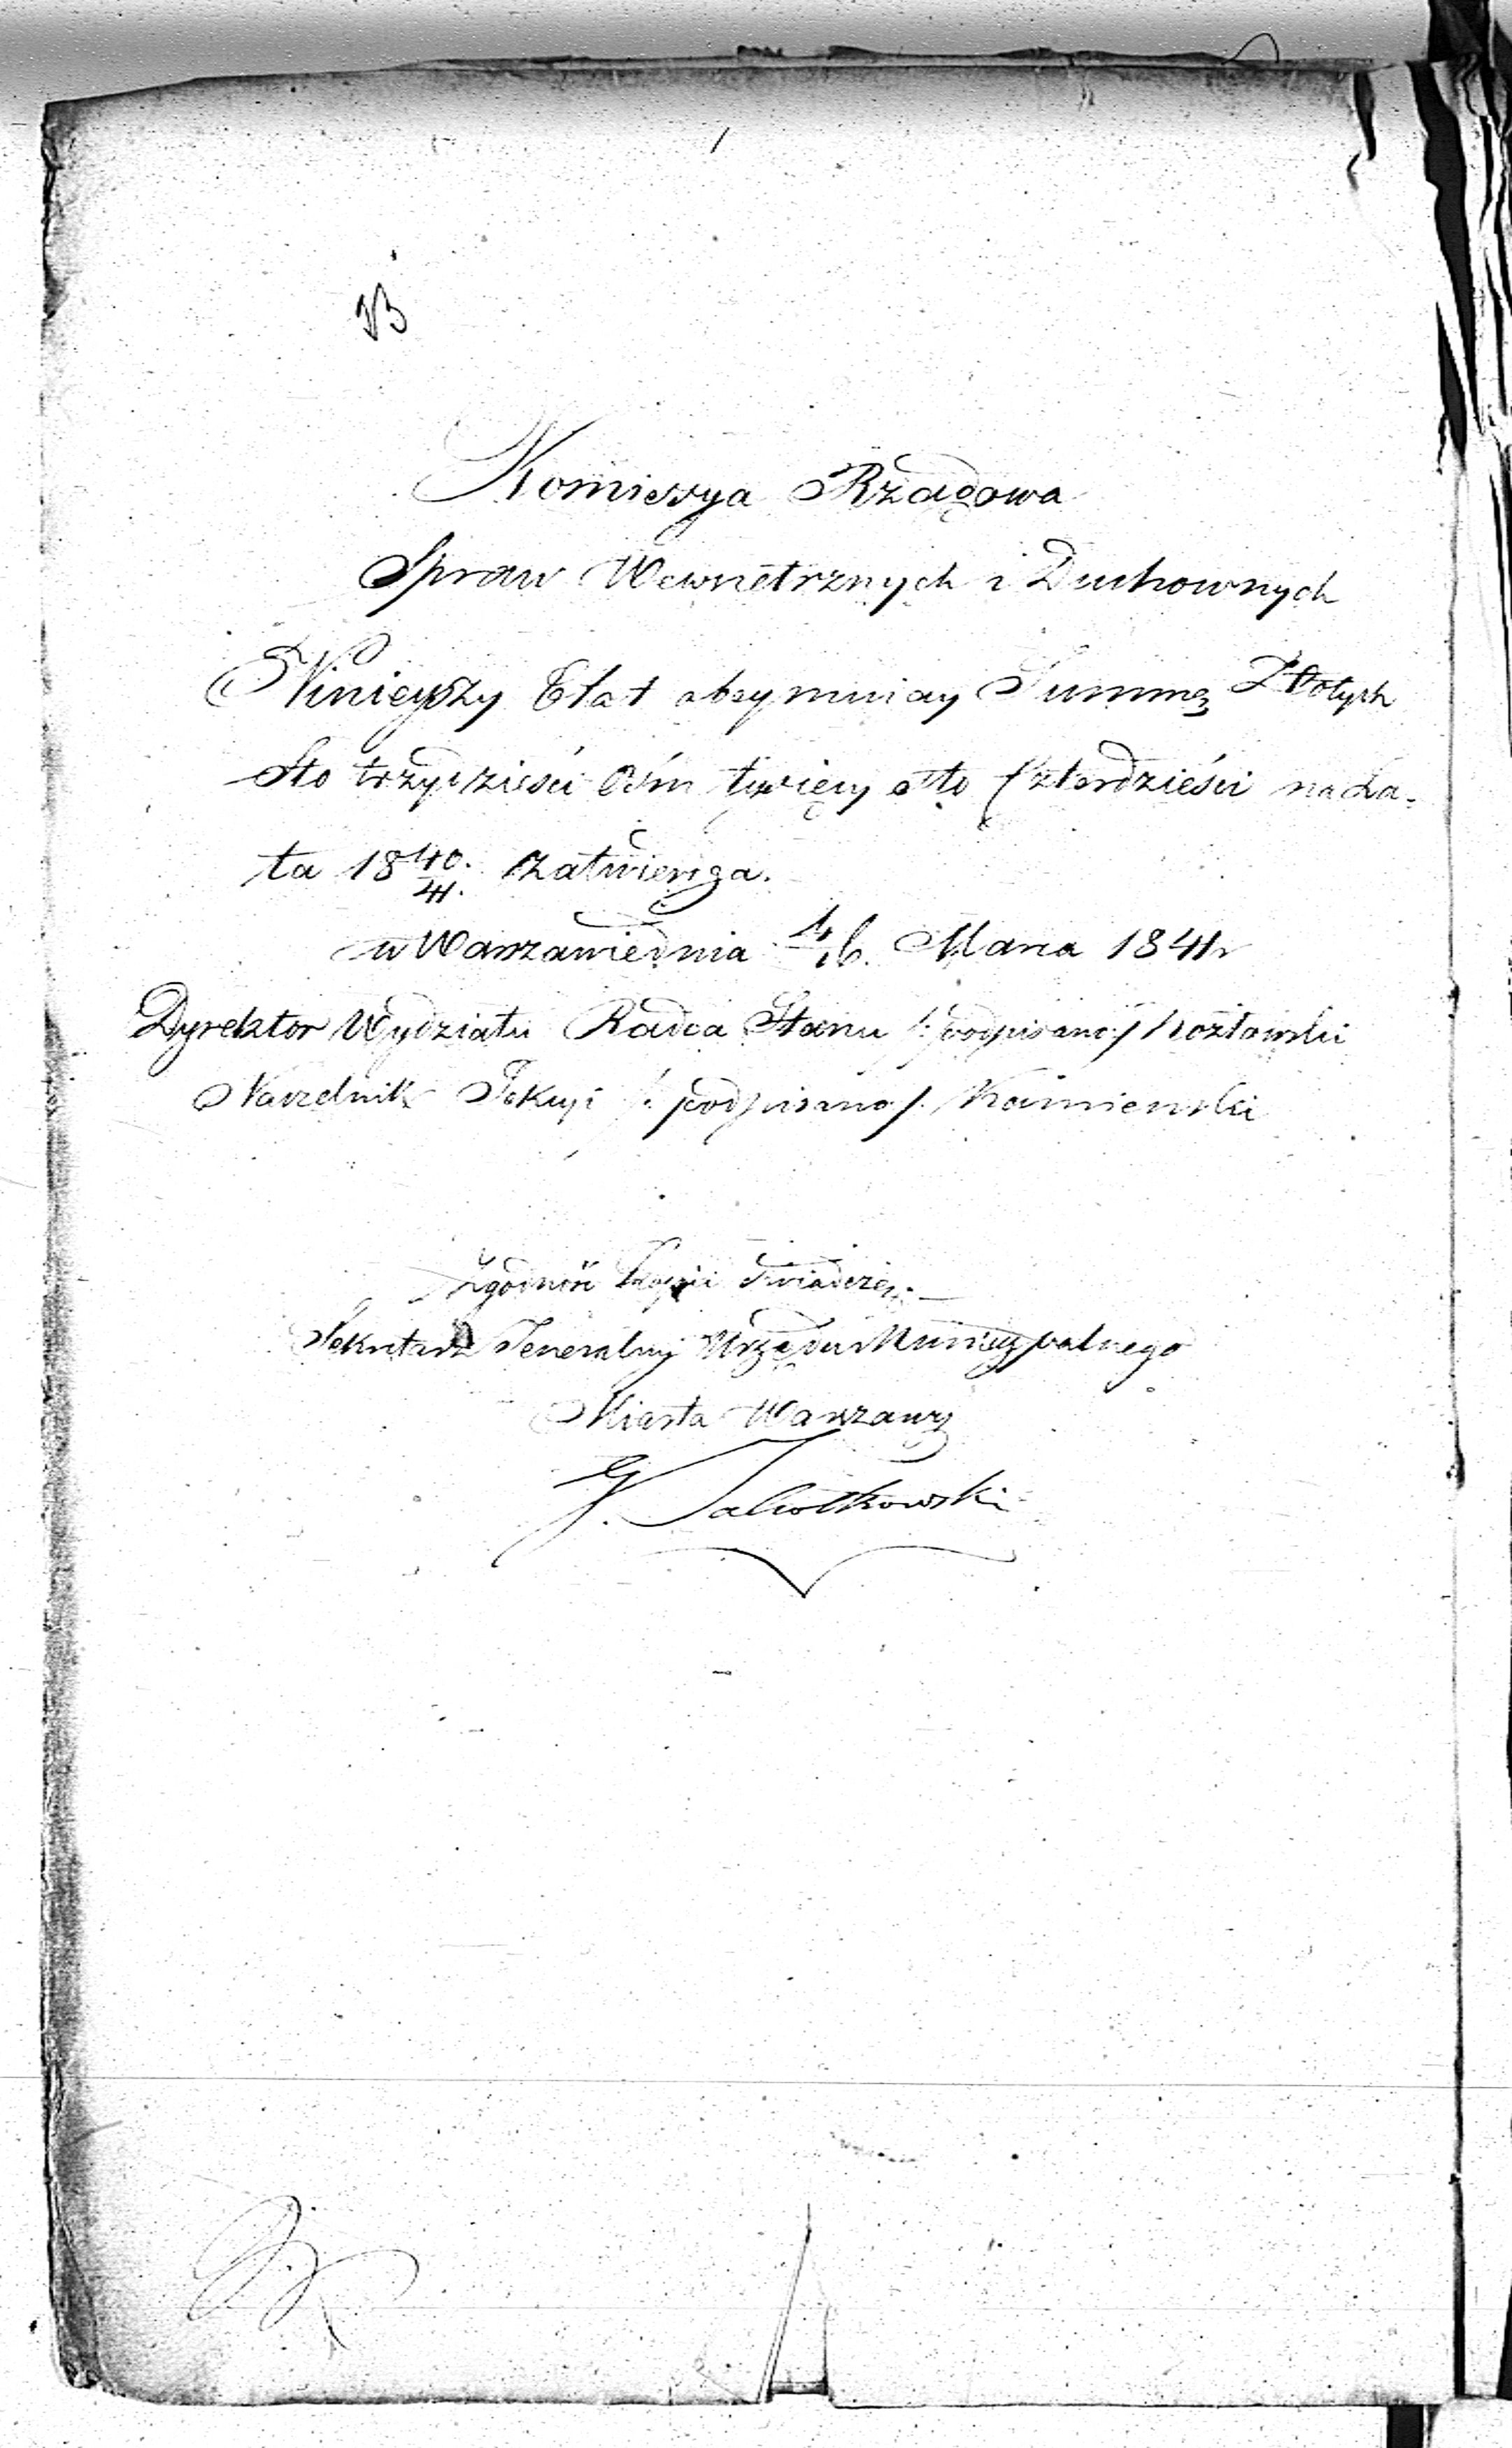 Kommissya Rządowa
Spraw Wewnętrznych i Duchownych
Ninieyszy Etat obeymuiący Summę Złotych
Sto trzydzieści Ośm tysięcy sto Czterdzieści na La-
ta 1840/41. zatwierdza.
w Warszawie dnia 4/16. Marca 1841 r
Dyrektor Wydziału Radca Stanu /: podpisano :/ Kozłowski
Naczelnik Sekcyi /: podpisano /: Kamieński
Zgodność Kopii Świadczę
Sekretarz Jeneralny Urzędu Municypalnego
Miasta Warszawy